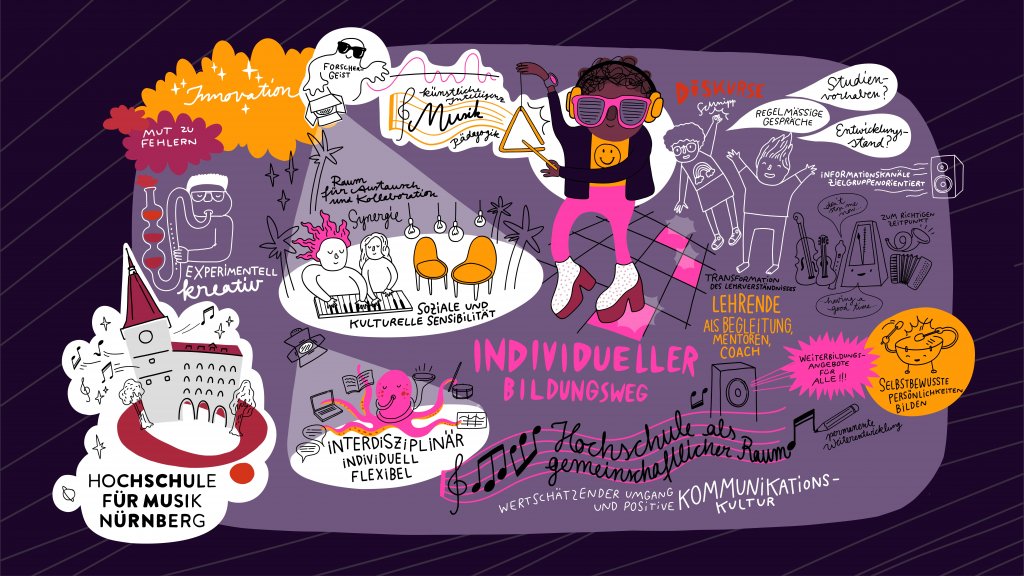 Innovation
FORSCHER
GEIST
künstliche Intelligenz
Musik
Pädagogik
MUT ZU
FEHLERN
DISKURSE
Schnipp
REGELMÄSSIGE
GESPRÄCHE
Studien-
vorhaben?
Entwicklungs-
stand?
INFORMATIONSKANÄLE
ZIELGRUPPENORIENTIERT
don't
stop me
now
ZUM RICHTIGEN
ZEITPUNKT
having a
good time
Raum
für Austausch
und Kollaboration
Synergie
EXPERIMENTELL
kreativ
SOZIALE UND
KULTURELLE SENSIBILITÄT
TRANSFORMATION
DES LEHRVERSTÄNDNISSES
LEHRENDE
ALS BEGLEITUNG,
MENTOREN,
COACH
INDIVIDUELLER
BILDUNGSWEG
WEITERBILDUNGS-
ANGEBOTE
FÜR
ALLE!!!
SELBSTBEWUSSTE
PERSÖNLICHKEITEN
BILDEN
permanente
Weiterentwicklung
INTERDISZIPLINÄR
INDIVIDUELL
FLEXIBEL
Hochschule als
gemeinschaftlicher Raum
WERTSCHÄTZENDER UMGANG
UND POSITIVE
KOMMUNIKATIONS-
KULTUR
HOCHSCHULE
FÜR MUSIK
NÜRNBERG